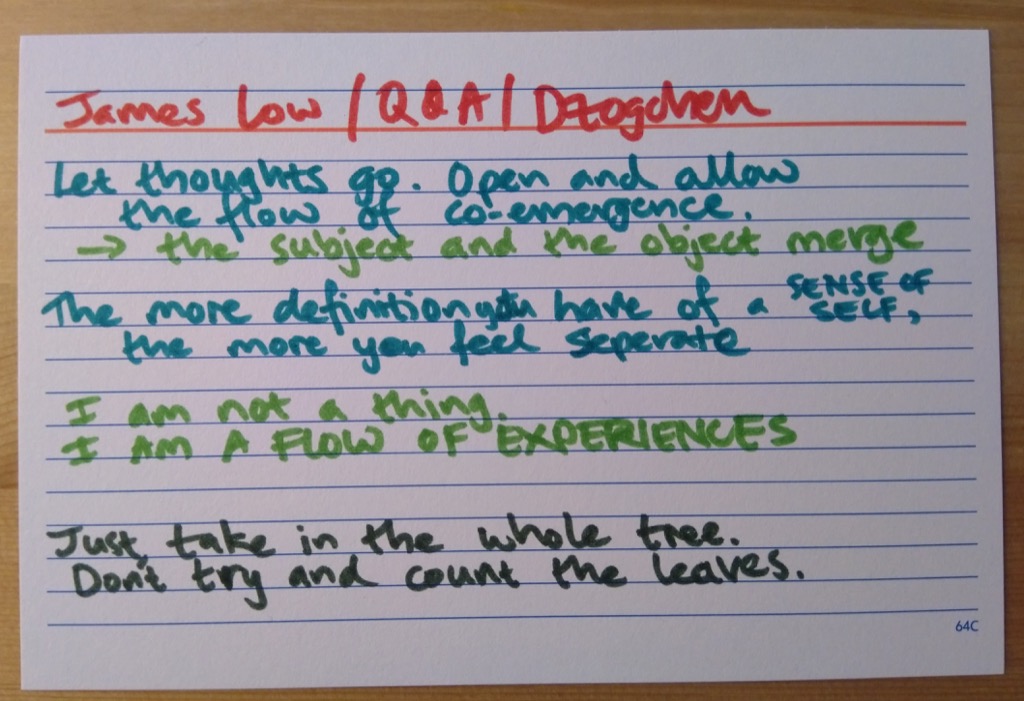 James Low / Q&A / Dzogchen
Let thoughts go. Open and allow
the flow of co-emergence.
→ the subject and the object merge
The more definition you have of a SENSE OF SELF,
the more you feel seperate
I am not a thing.
I AM A FLOW OF EXPERIENCES
Just take in the whole tree.
Don't try and count the leaves.
64C